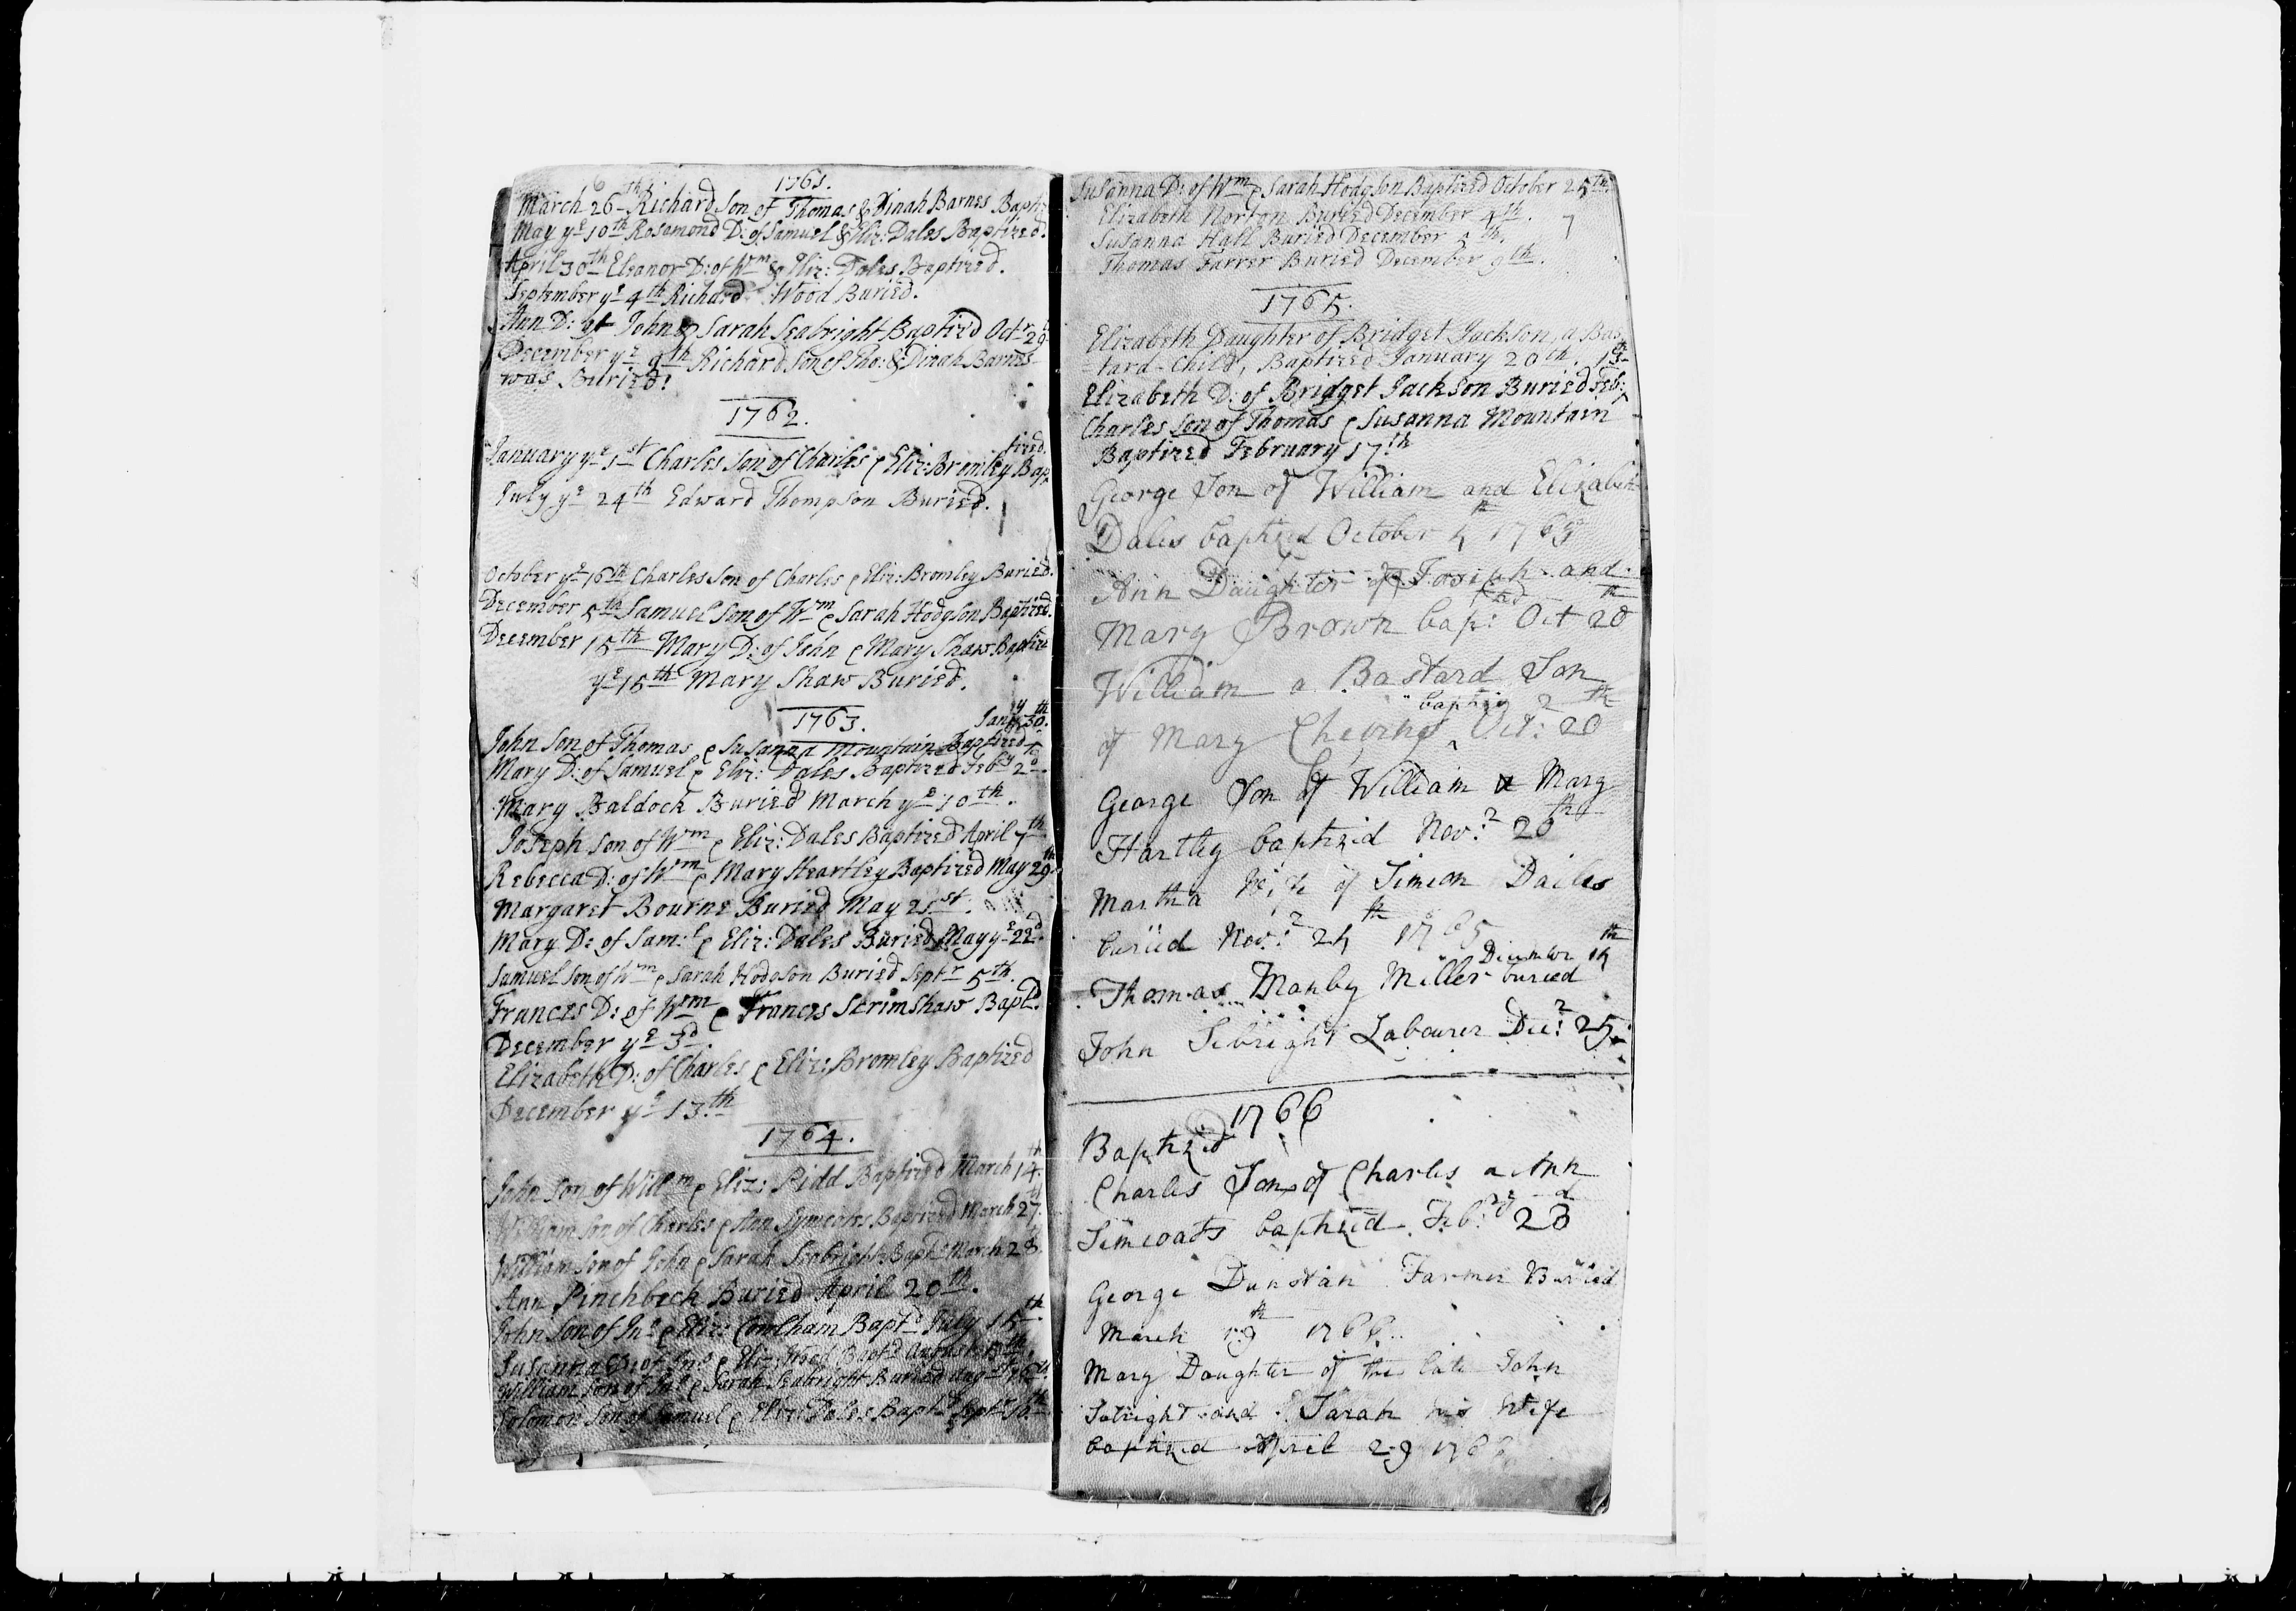 6
1761.
March 26th Richard Son of Thomas & Dinah Barnes Bapti
May ye 10th Rosamond D: of Samuel & Eliz: Dales Baptized.
April 30th Eleanor D: of Wm & Eliz: Dales Baptized.
September ye 4th Richard Wood Buried.
Ann D: of John & Sarah Seabright Baptized Octr 29
December ye 9th Richard Son of Tho: & Dinah Barnes
was Buried.
1762.
tized.
January ye 1st Charles Son of Charles & Eliz: Bromley Bap
July ye 24th Edward Thompson Buried.
October ye 16th Charles Son of Charles & Eliz: Bromley Buried.
December 5th Samuel Son of Wm & Sarah Hodgson Baptized.
December 15th Mary D: of John & Mary Shaw Baptize
ye 15th Mary Shaw Buried.
1763.
Jany 30th.
John Son of Thomas & Susanna Mountain Baptized
Mary D: of Samuel & Eliz: Dales Baptized Feby 2d
Mary Baldock Buried March ye 10th.
Joseph Son of Wm & Eliz: Dales Baptized April 7th
Rebecca D: of Wm & Mary Heartley Baptized May 29th
Margaret Bourne Buried May 21st.
Mary D: of Sam:l & Eliz: Dales Buried May ye 22d.
Samuel Son of Wm & Sarah Hodgson Buried Septr 5th.
Frances D: of Wm & Frances Scrimshaw Bapt:d
December ye 3d.
Elizabeth D: of Charles & Eliz: Bromley Baptized
December ye 13th
1764.
John Son of Willm & Eliz: Pidd Baptized March 14th.
William Son of Charles & Ann Symcotes Baptized March 27.
William Son of John & Sarah Seabright Bapt: March 28.
Ann Pinchbeck Buried April 20th.
John Son of Jno & Eliz: Cowlham Bapt:d July 15th
Susanna D: of Jno & Eliz: Wood Bapt:d August
William Son of Jno & Sarah Seabright Buried Aug 16th
Solomon Son of Samuel & Eliz: Dales Bapt:d Septr 10th
Susanna D: of Wm & Sarah Hodgson Baptized October 25th.
Elizabeth Norton Buried December 4th.
7
Susanna Hall Buried December 5th.
Thomas Farrer Buried December 9th.
1765.
Elizabeth Daughter of Bridget Jackson, a Bas
tard-Child, Baptized January 20th.
Elizabeth D: of Bridget Jackson Buried Feb:
Charles Son of Thomas & Susanna Mountain
Baptized February 17th
George Son of William and Elizabeth
Dales baptized October 4th 1765
Ann Daughter of Josiah and
Mary Brown bap: Oct 20th
William a Bastard Son
baptiz
of Mary Chevins Oct: 20th
George Son of William & Mary
Hartley baptized Nov:r 20th
Martha Wife of Simeon Dailes
buried Nov:r 24th 1765
December 14th
Thomas Manby Miller buried
John Sebright Labourer Dec:r 25.
1766
Baptized
Charles Son of Charles a Ann
Simcoats baptized Feb:
George Dunstan Farmer Buried
March 19th 1766.
Mary Daughter of the late John
Sebright and Sarah his Wife
baptized April 29 1766